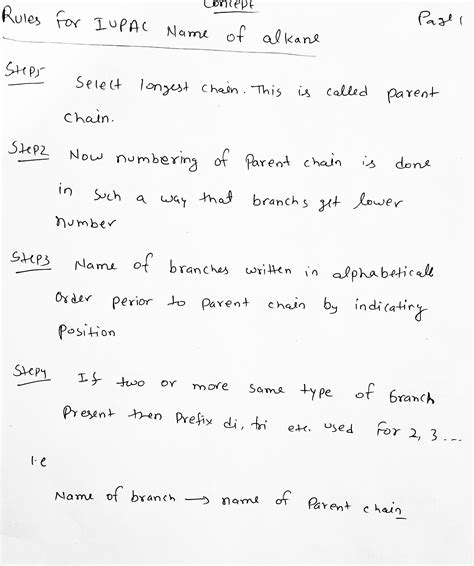 Concept
Page 1
Rules for IUPAC Name of alkane
Steps- Select longest chain. This is called parent
chain.
Step2 Now numbering of Parent chain is done
in such a way that branchs get lower
number
Step3 Name of branches written in alphabeticall
Order perior to Parent chain by indicating
Position
Step4 If two or more same type of branch
Present then Prefix di, tri etc. used for 2, 3 ...
i.e
Name of branch → name of Parent chain